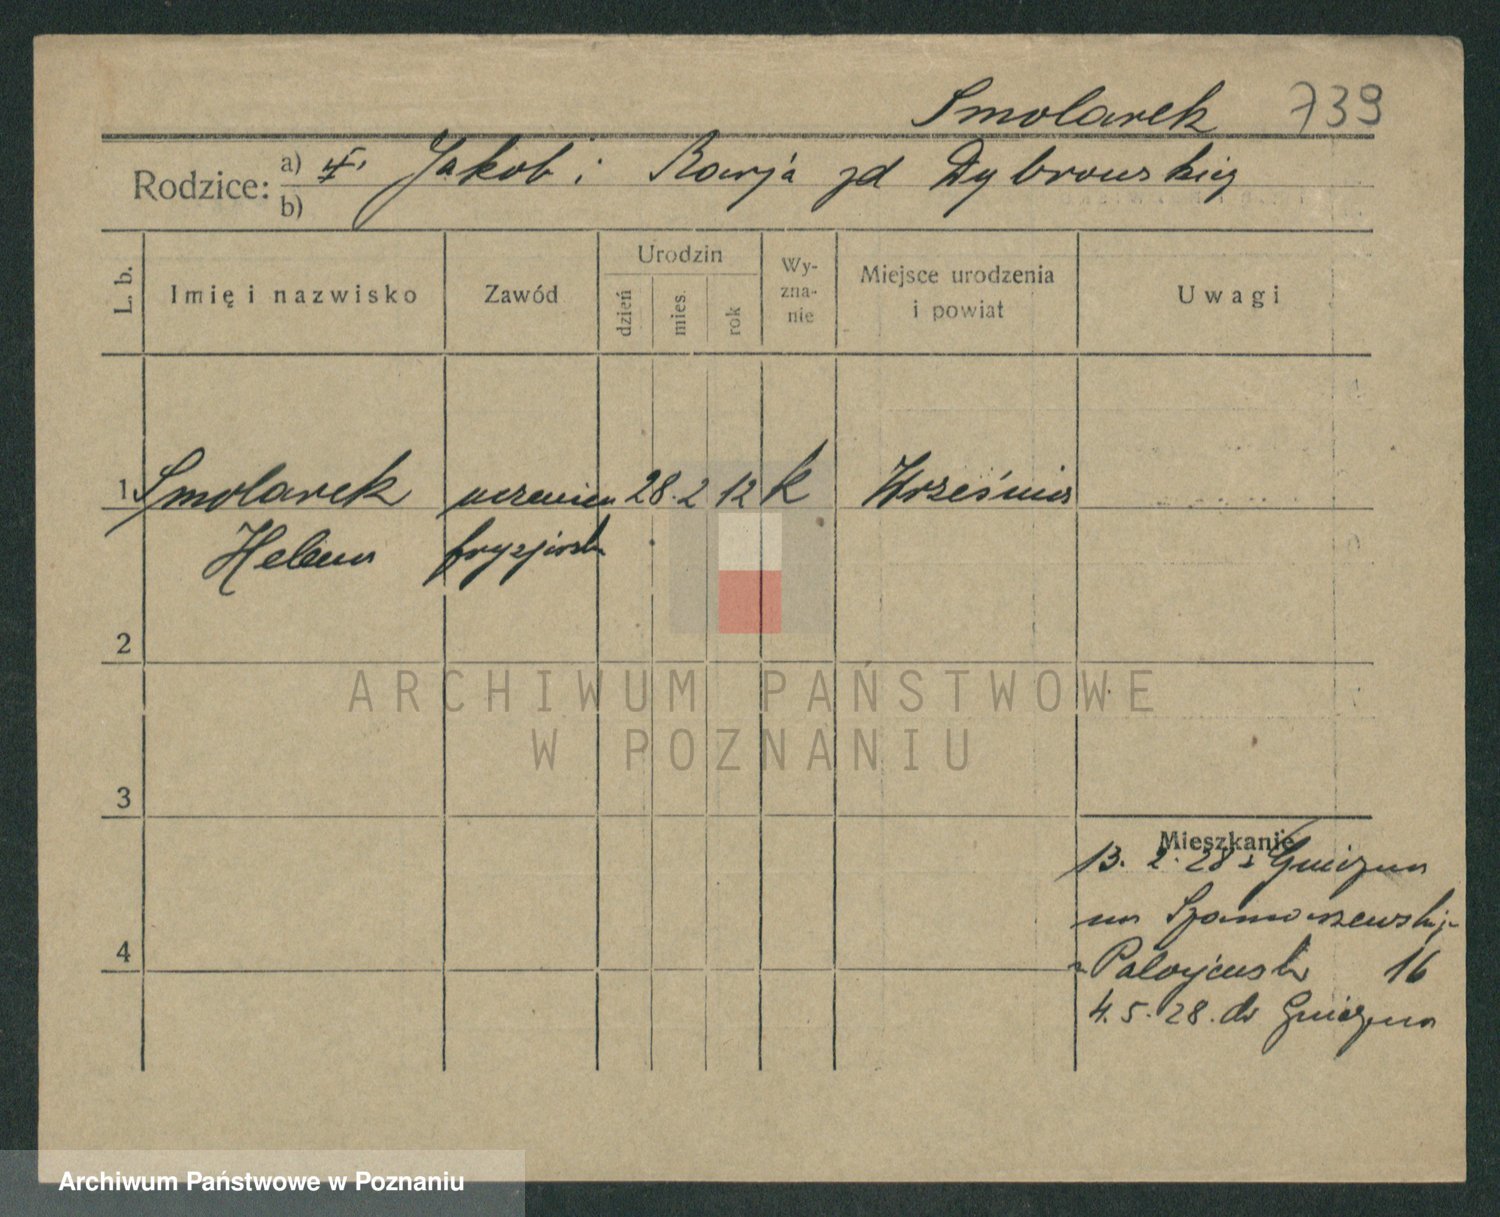 Smolarek 739
Rodzice: a) Jakób i Marja zd Dybrowskiej
b)
L. b. Imię i nazwisko Zawód Urodzin dzień mies. rok Wy-zna-nie Miejsce urodzenia i powiat Uwagi
1 Smolarek uczenica 28. 2 12 k Września
Helena fryzjersk
2
ARCHIWUM PAŃSTWOWE
W POZNANIU
3
Mieszkanie
13. 2. 28 z Gniezna
na Szamarzewskiego
16
4
4. 5. 28. do Gniezna
Archiwum Państwowe w Poznaniu